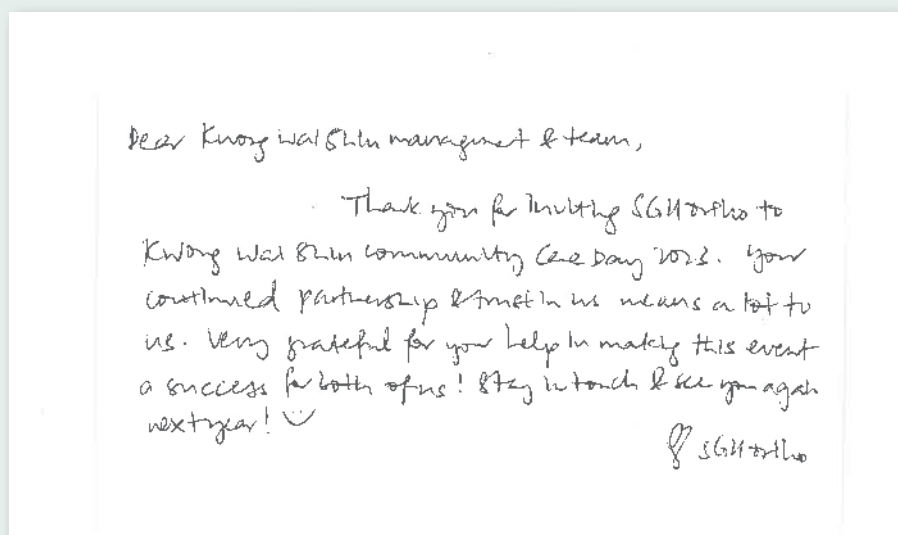 Dear Kwong Wai Shiu management & team,
Thank you for inviting SGH Ortho to
Kwong Wai Shiu Community Care Day 2023. Your
continued partnership & trust in us means a lot to
us. Very grateful for your help in making this event
a success for both of us! Stay in touch & see you again
next year!
SGH Ortho